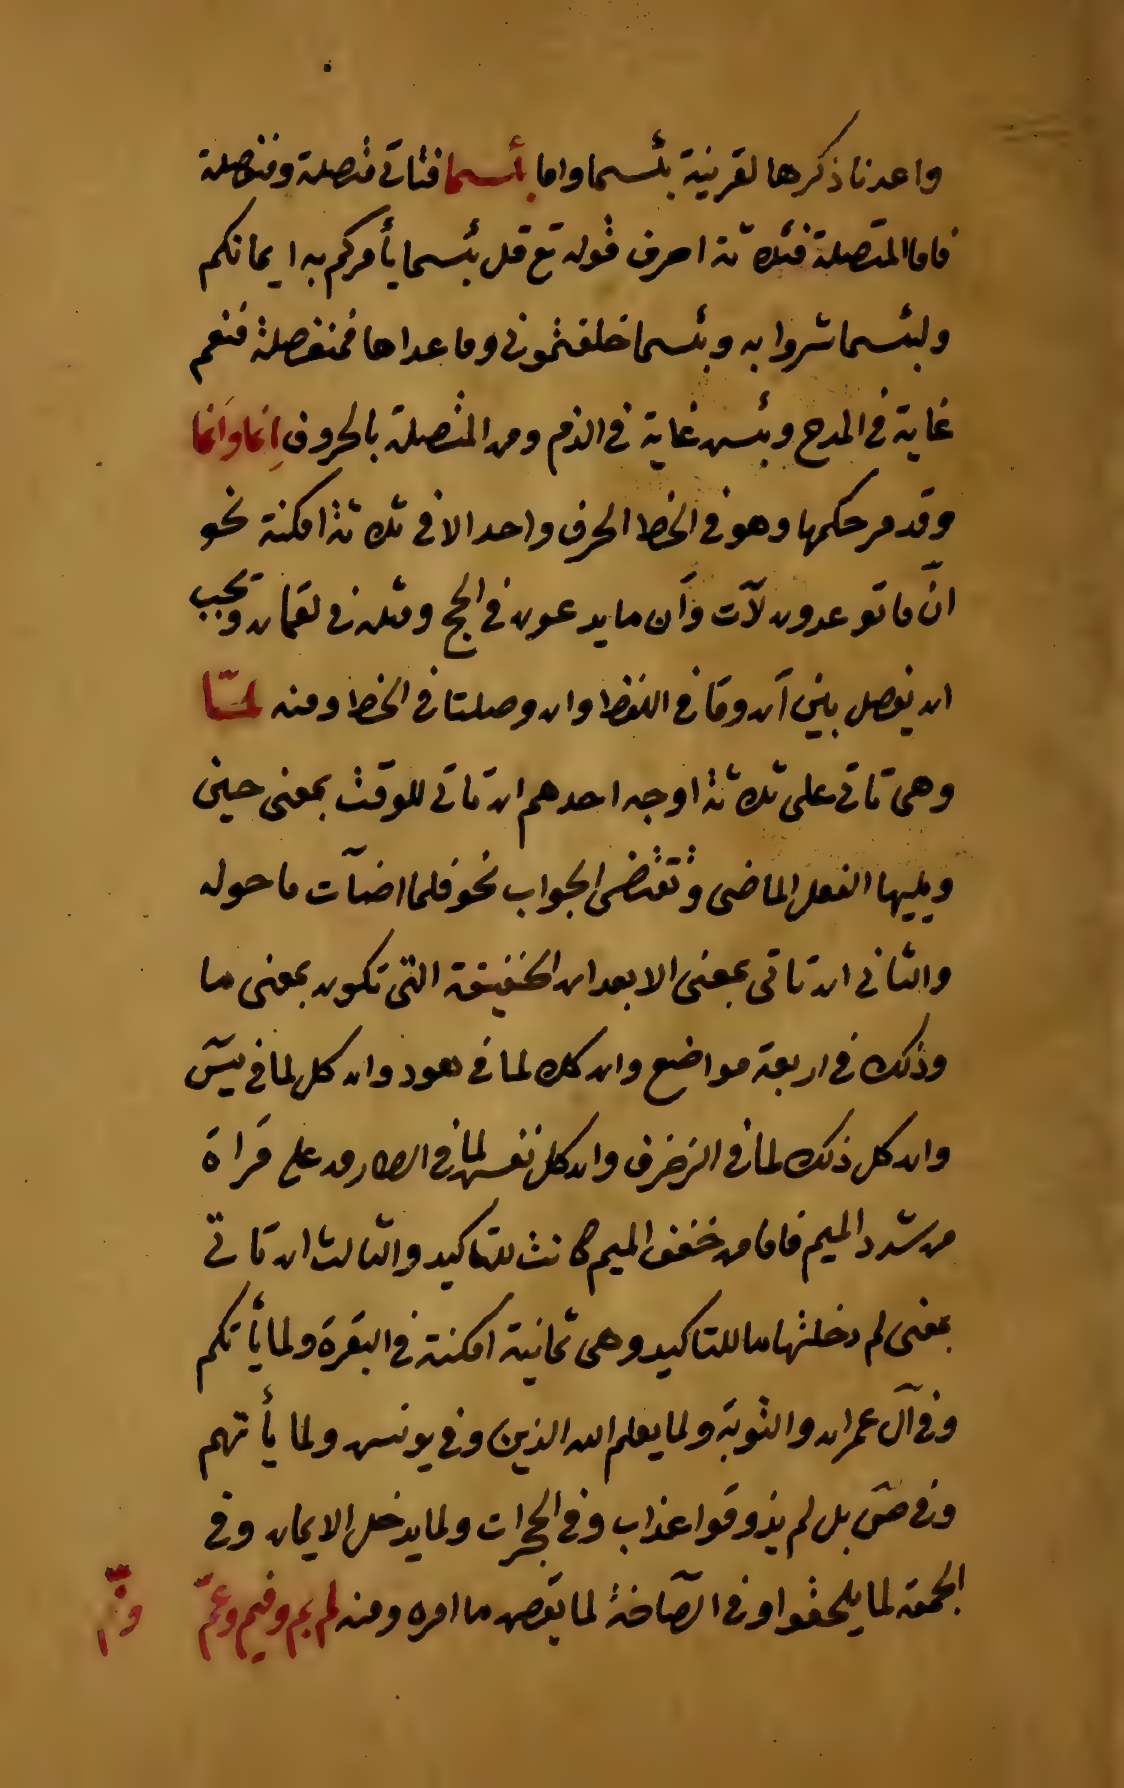 واعدنا ذكرها لقرنية بئسما واما بئسما فتاتي متصلة ومنفصلة
فاما المتصلة فثلاثة احرف قوله تع قل بئسما يأمركم به ايمانكم
ولبئسما شروا به وبئسما خلفتموني وما عداها فمنفصلة فنعم
غاية في المدح وبئس غاية في الذم ومن المتصلة بالحروف اِنما واَنما
وقد مر حكمها وهو في الخط الحرف واحد الا في ثلاثة امكنة نحو
انّ ما توعدون لآت وأن ما يدعون في الحج ومثله في لقمان وتجب
ان يفصل بين أن وما في اللفظ وان وصلتا في الخط ومنه لمّا
وهي تاتي على ثلاثة اوجه احدهم ان تاتي للوقت بمعنى حين
ويليها الفعل الماضي وتقتضي الجواب نحو فلما اضآت ما حوله
والثاني ان تاتي بمعنى الا بعد ان الخفيفة التي تكون بمعنى ما
وذلك في اربعة مواضع وان كلا لما في هود وان كل لما في يسٓ
وان كل ذلك لما في الزخرف وان كل نفس لما في الطارق على قراة
من شدد الميم فاما من خفف الميم كانت للتاكيد والثالث ان تاتي
بمعنى لم دخلتها ما للتاكيد وهي ثمانية امكنة في البقرة ولما يأتكم
وفي آل عمران والتوبة ولما يعلم الله الذين وفي يونس ولما يأتهم
وفي صٓ بل لم يذوقوا عذاب وفي الحجرات ولما يدخل الايمان وفي
الجمعة لما يلحقوا وفي الصّاخة لما يقض ما امره ومنه لم بم وفيم وعمّ